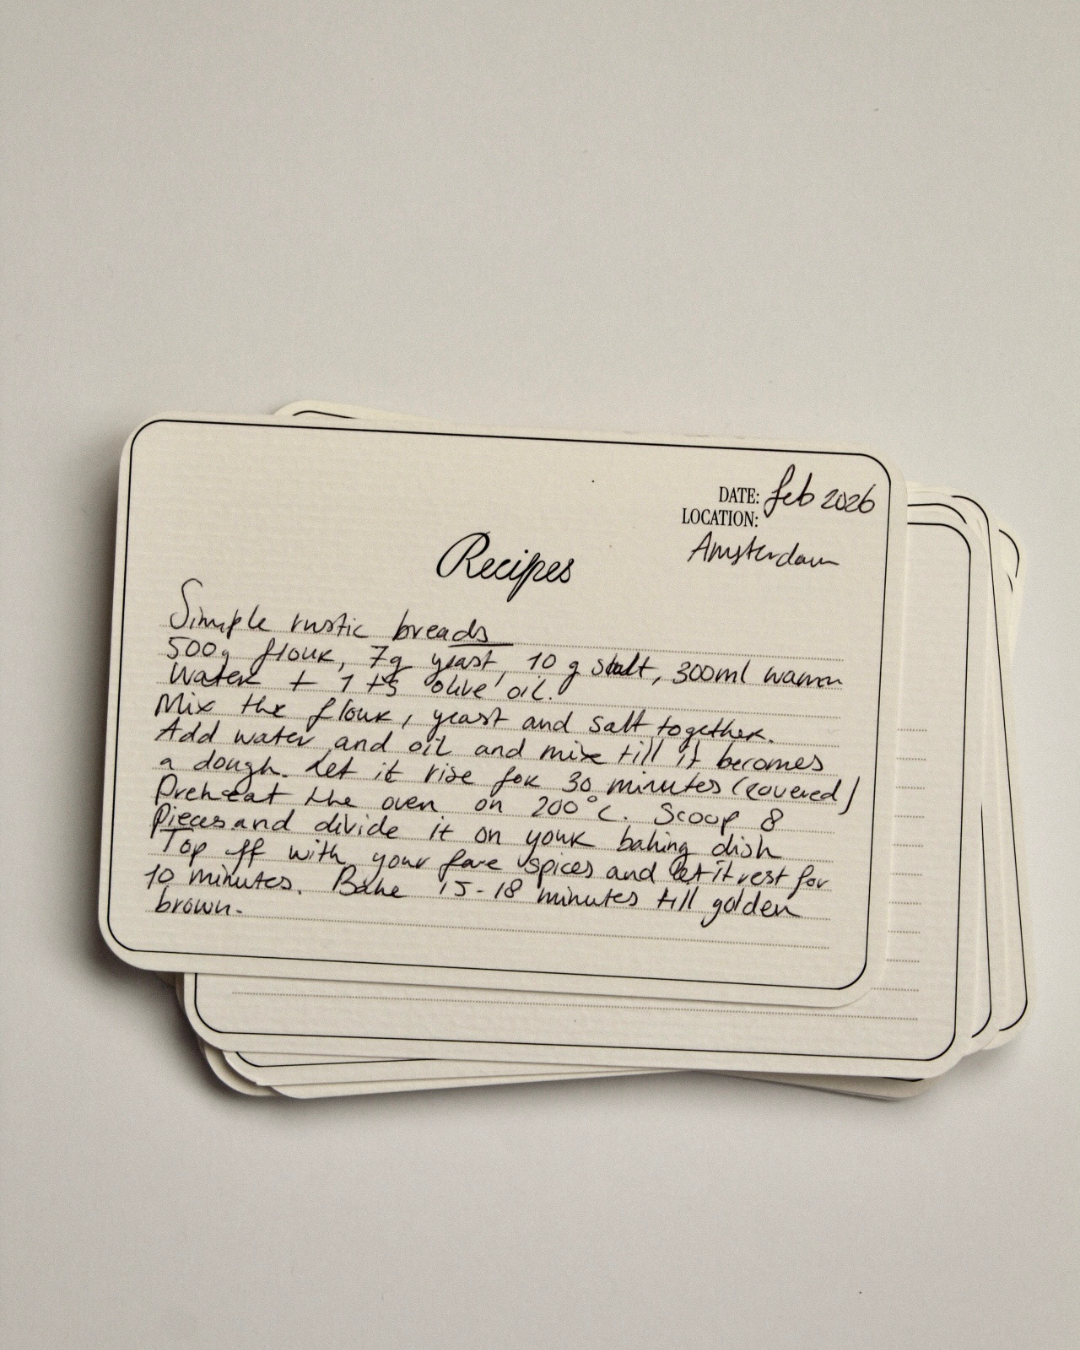 DATE: feb 2026
LOCATION:
Amsterdam
Recipes
Simple rustic breads
500g flour, 7g yeast, 10 g salt, 300ml warm
Water + 1 ts olive oil.
Mix the flour, yeast and salt together.
Add water and oil and mixe till it becomes
a dough. Let it rise for 30 minutes (covered)
Preheat the oven on 200°C. Scoop 8
Pieces and divide it on your baking dish
Top off with your fave spices and let it rest for
10 minutes. Bake 15-18 minutes till golden
brown.